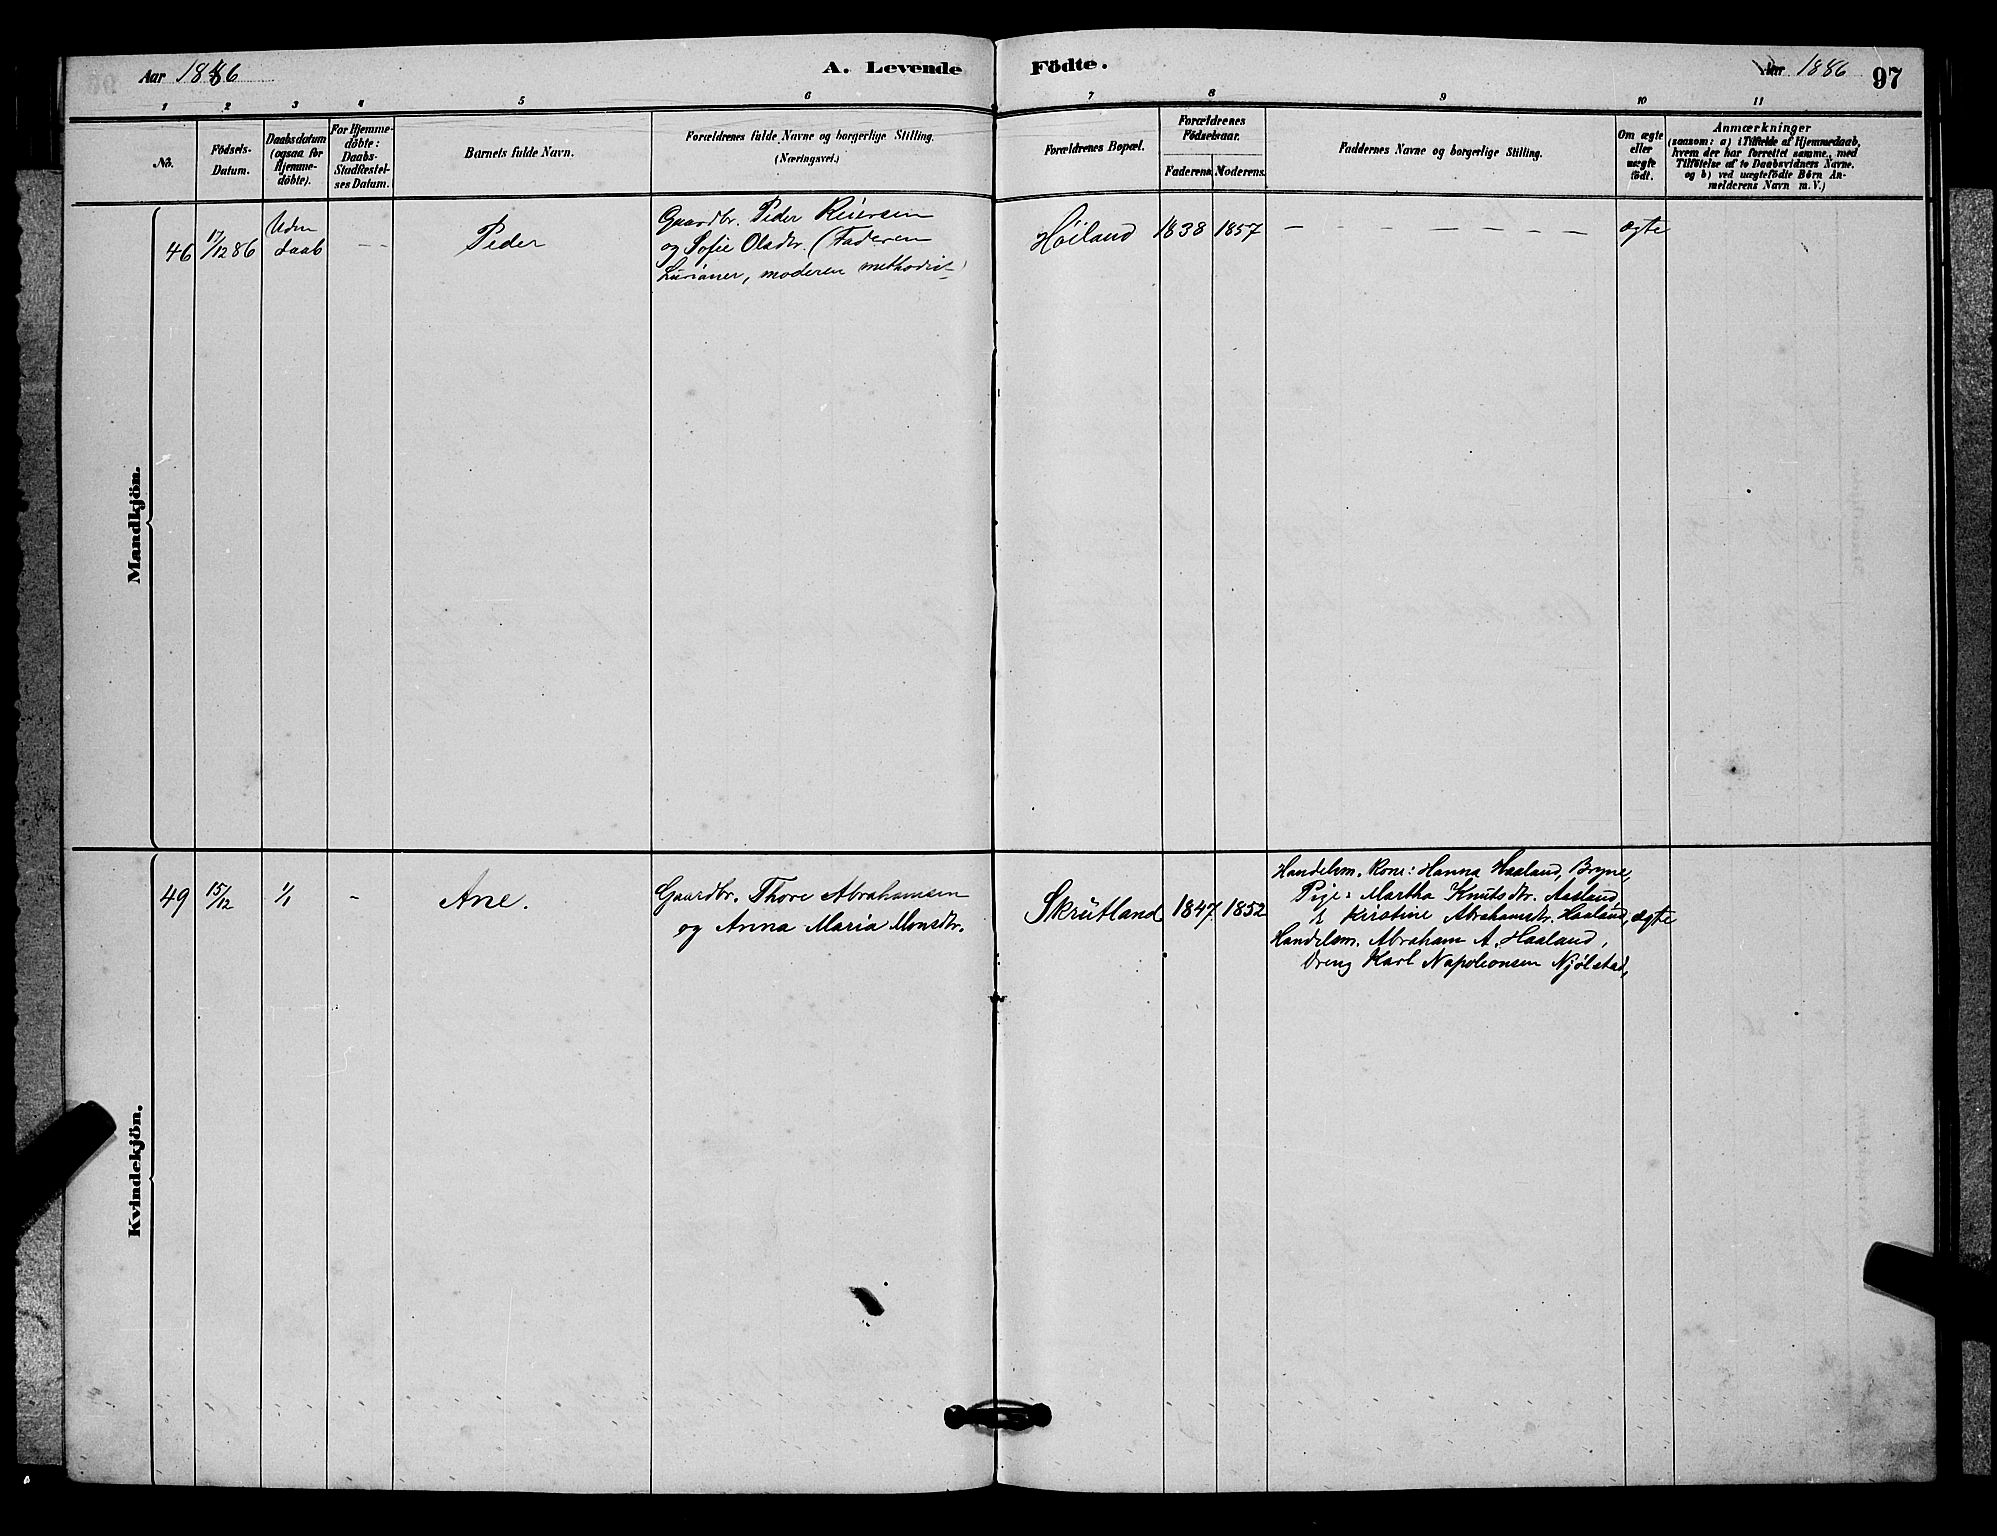 Aar 1886
A. Levende Födte.
Aar 1886
97
1 2 3 4 5 6 7 8 9 10 11
No.
Födsels-Datum.
Daabsdatum (ogsaa for Hjemme-döbte).
For Hjemme-döbte: Daabs-Stadfæstel-ses Datum.
Barnets fulde Navn.
Forældrenes fulde Navne og borgerlige Stilling. (Næringsvei.)
Forældrenes Bopæl.
Forældrenes Födselsaar.
Faderens. Moderens.
Faddernes Navne og borgerlige Stilling.
Om ægte eller uægte födt.
Anmærkninger
(saasom: a) i Tilfælde af Hjemmedaab,
hvem der har forrettet samme, med
Tilföielse af to Daabsvidners Navne.
og b) ved uægtefödte Börn An-
melderens Navn m. V.)
Mandkjön.
46
17/12 86
Uden daab
— —
Peder
Gaardbr. Peder Reiersen
og Sofie Olsdtr. (Faderen
Lutrianer, moderen methodist)
Höiland
1838
1857
— — — — — — —
ægte
Kvindekjön.
49
15/12
1/1
—
Ane.
Gaardbr. Thore Abrahamsen
og Anna Maria Monsdtr.
Skrutland
1847
1852
Handelsm. Kone: Hanna Haaland, Bryne,
Pige: Martha Knutsdtr. Aasland,
Kristine Abrahamsdtr. Haaland,
Handelsm. Abraham A. Haaland,
Dreng Karl Napoleonsen Njölstad,
ægte